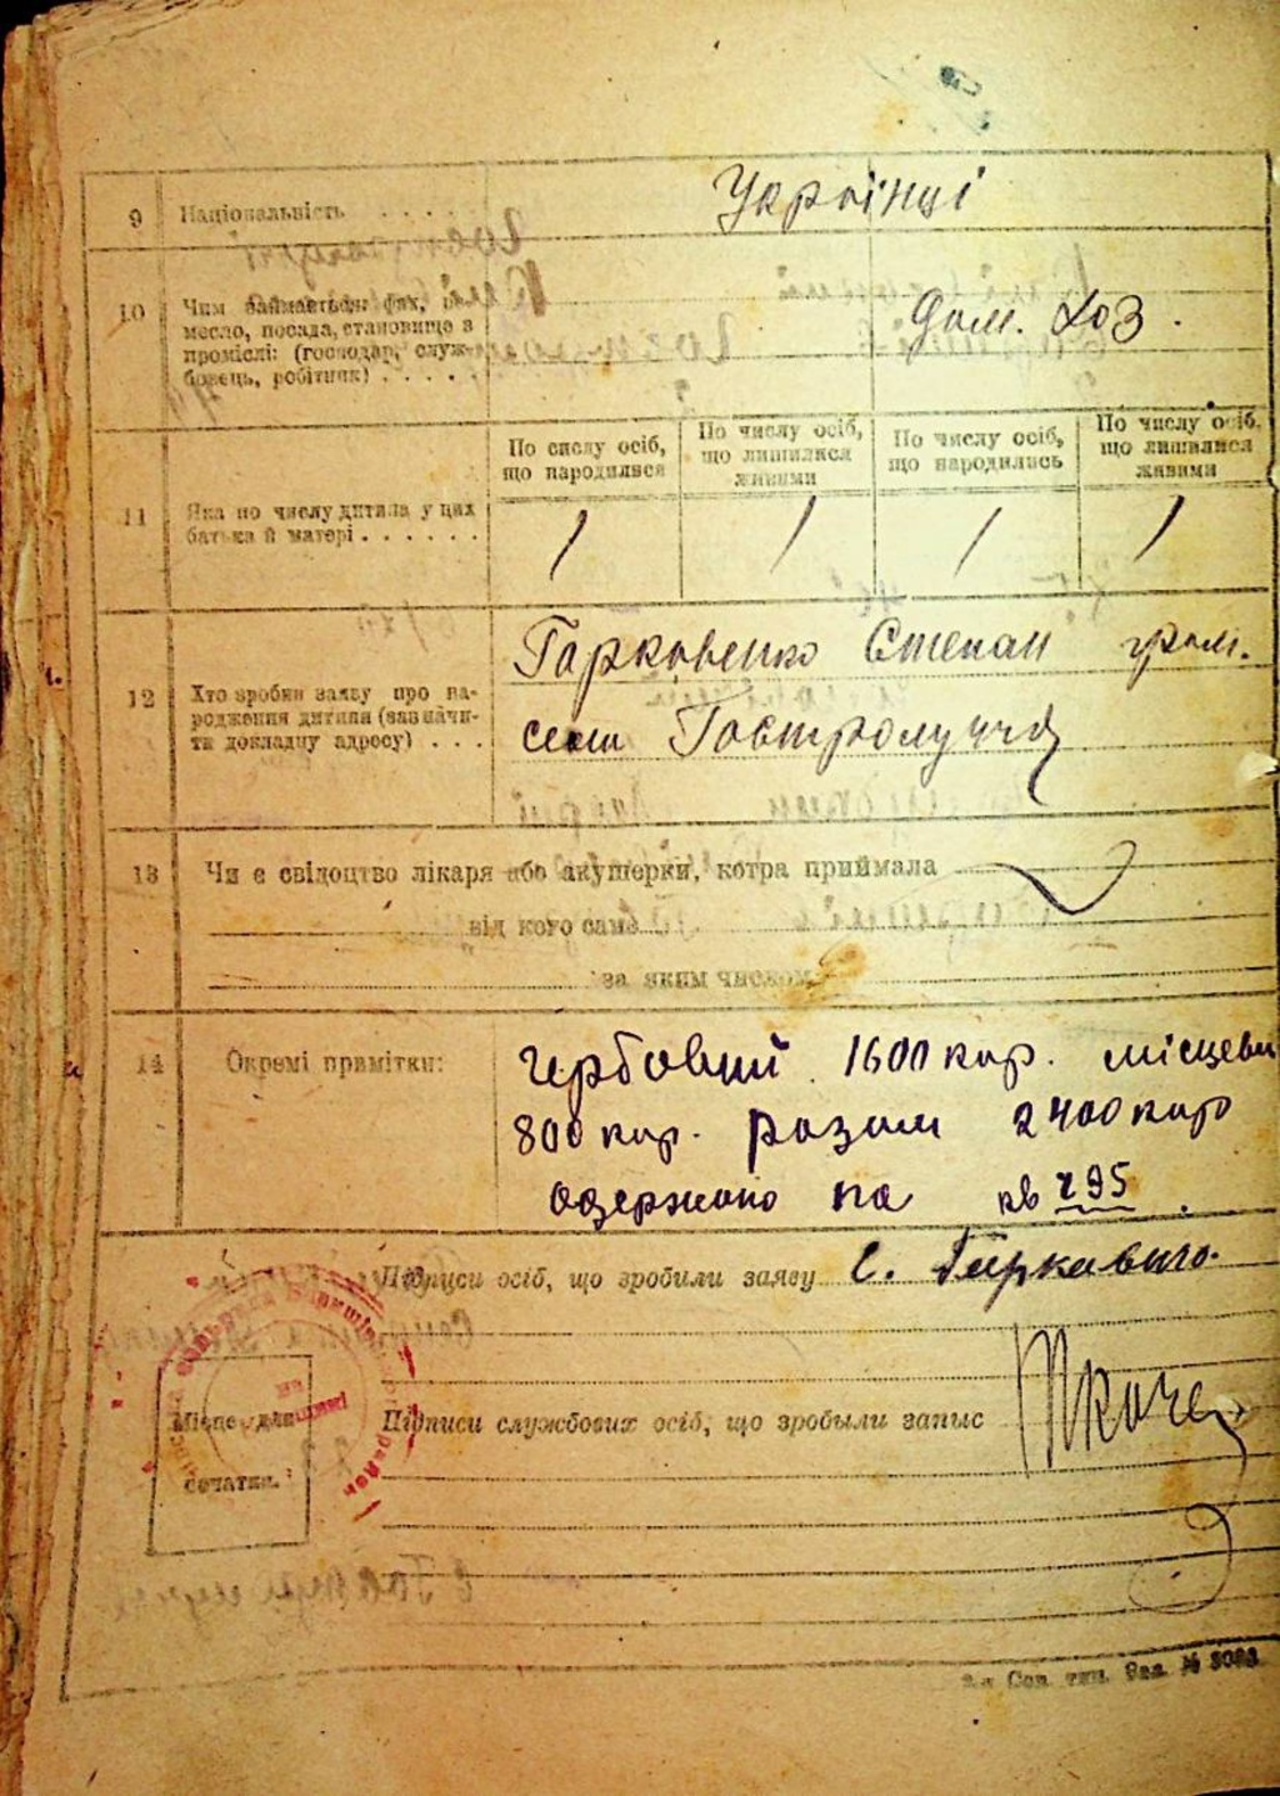 9 Національність . . . . .
Українці
10 Чим займається: фах, ре-
месло, посада, становище в
промислі: (господар, служ-
бовець, робітник) . . . . .
дом. хоз.
По числу осіб,
що народилися
По числу осіб,
що лишилися
живими
По числу осіб,
що народились
По числу осіб,
що лишилися
живими
11 Яка по числу дитина у цих
батька й матері . . . . . .
1 1 1 1
12 Хто зробив заяву про на-
родження дитини (зазначи-
ти докладну адресу) . . .
Гаркавенко Степан гром.
села Гостролуччя
13 Чи є свідоцтво лікаря або акушерки, котра приймала
від кого саме
за яким числом
14 Окремі примітки:
гербовий 1600 кар. місцеви
800 кар. разом 2400 кар
одержано по кв 295.
Підписи осіб, що зробили заяву С. Гаркавыно.
Місце для
печатки.
Підписи службових осіб, що зробили запис
Сов. тип. Зак. №